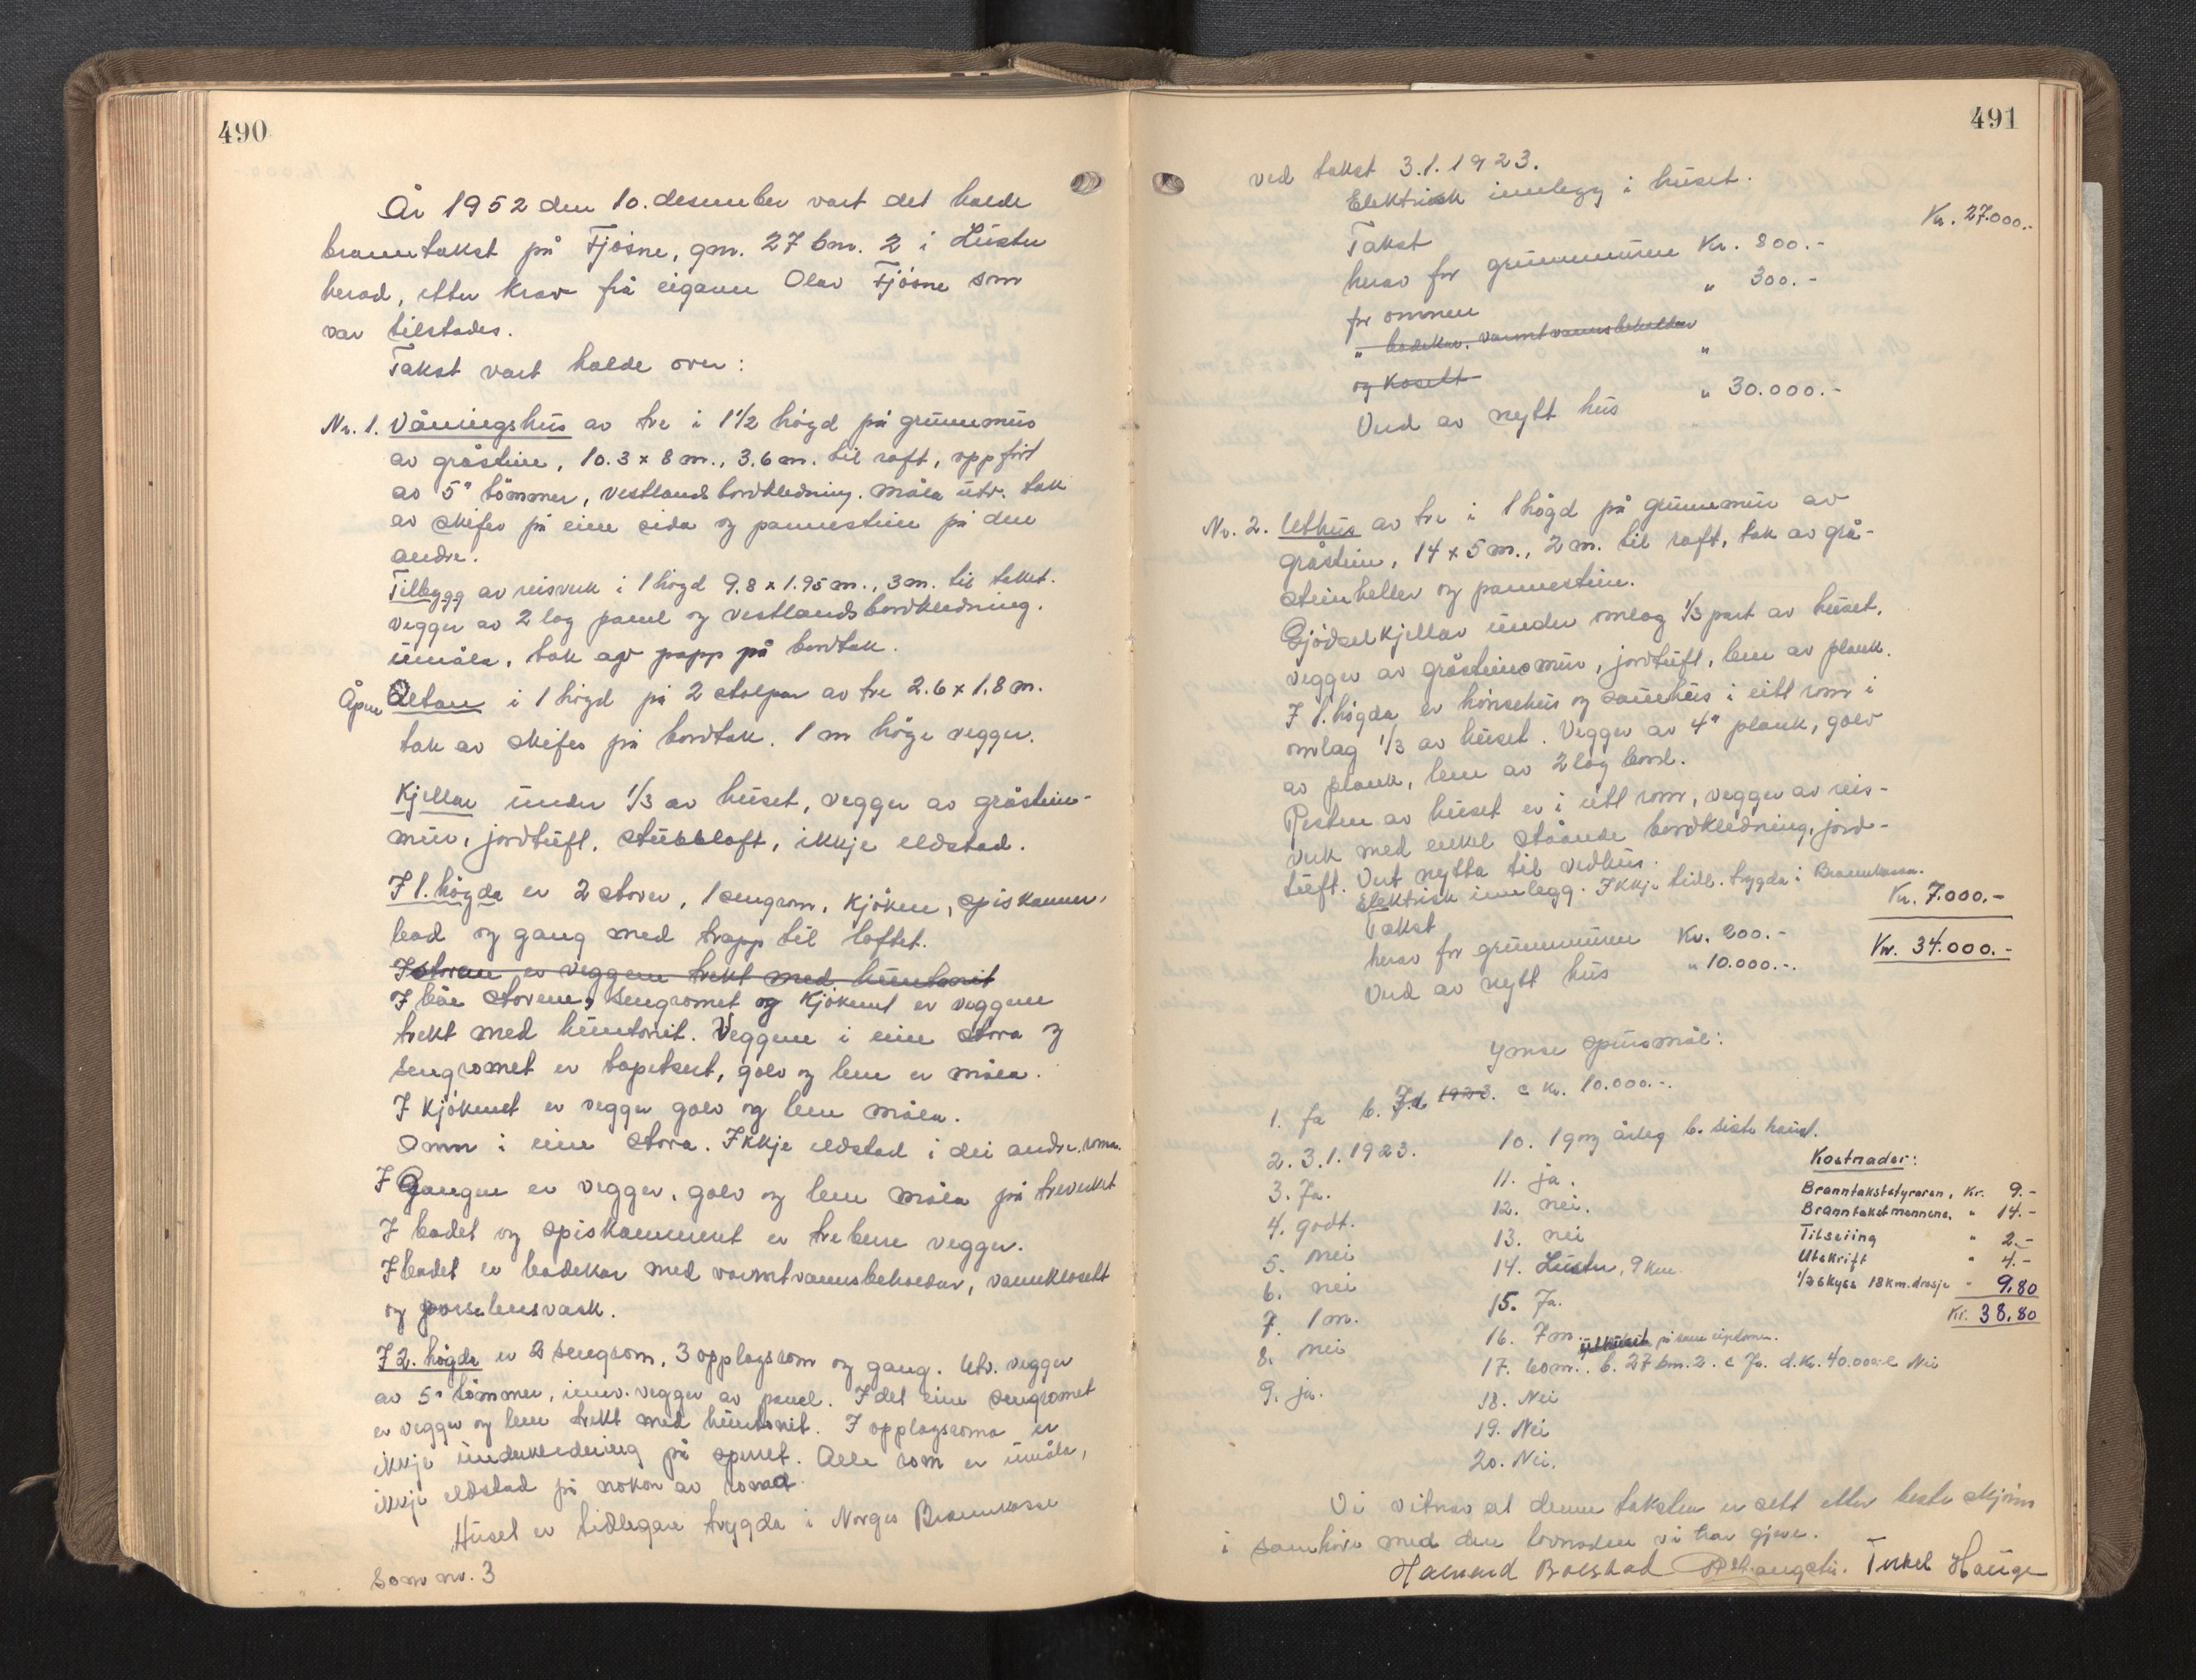 490
År 1952 den 10. desember vart det halde
branntakst på Fjøsne, gnr. 27 bnr. 2 i Luster
herad, etter krav frå eigaren Olav Fjøsne som
var tilstades.
Takst vart halde over:
Nr. 1. Våningshus av tre i 1 1/2 høgd på grunnmur
av gråstein, 10.3 x 8 m., 3.6 m. til raft, oppført
av 5" tømmer, vestlandsbordkledning. måla utv. tak
av skifer på eine sida og pannestein på den
andre.
Tilbygg av reisverk i 1 høgd 9.8 x 1.95 m., 3 m. til taket.
vegger av 2 lag panel og vestlandsbordkledning.
umåla, tak av papp på bordtak.
Åpen Altan i 1 høgd på 2 stolpar av tre 2.6 x 1.8 m.
tak av skifer på bordtak. 1 m høge vegger.
Kjellar under 1/3 av huset, vegger av gråstein-
mur, jordtuft, stubbloft, ikkje eldstad.
I 1. høgda er 2 stover, 1 sengrom, kjøken, spiskammer,
bad og gang med trapp til loftet.
I stovene er veggene trekt med huntonit
I båe stovene, sengromet og kjøkenet er veggene
trekt med huntonit. Veggene i eine stova og
sengromet er tapetsert, golv og lem er måla.
I kjøkenet er vegger golv og lem måla.
Omn i eine stova. Ikkje eldstad i dei andre roma.
I Gangen er vegger, golv og lem måla på treverket
I badet og spiskammeret er trekne vegger.
I badet er badekar med varmtvannsbeholdar, vannklosett
og porselensvask.
I 2. høgda er 2 sengrom, 3 opplagsrom og gang. Utv. vegger
av 5" tømmer, innv. vegger av panel. I det eine sengromet
er vegger og lem trekt med huntonit. I opplagsroma er
ikkje underkledning på sperret. Alle rom er umåla,
ikkje eldstad på nokon av roma.
Huset er tidlegare trygda i Norges Brannkasse
som nr. 3
491
ved takst 3.1.1923.
Elektrisk innlegg i huset.
Takst Kr. 27.000.-
herav for grunnmuren Kr. 800.-
for omnen " 300.-
" badekar, varmtvannsbeholdar
og kosett "
Verd av nytt hus " 30.000.-
Nr. 2. Uthus av tre i 1 høgd på grunnmur av
gråstein, 14 x 5 m., 2 m. til raft, tak av grå-
steinheller og pannestein.
Gjødselkjellar under omlag 1/3 part av huset,
vegger av gråsteinsmur, jordtuft, lem av plank.
I 1. høgda er hønsehus og sauehus i eitt rom i
omlag 1/3 av huset. Vegger av 4" plank, golv
av plank, lem av 2 lag bord.
Resten av huset er i eitt rom, vegger av reis-
verk med enkel ståande bordkledning, jord-
tuft. Vert nytta til vedhus.
Elektrisk innlegg. Ikkje tidl. trygda i Brannkassa.
Takst Kr. 7.000.-
herav for grunnmuren Kr. 200.-
Verd av nytt hus " 10.000.-. Kr. 34.000.-
Ymse spursmål:
1. Ja b. Ja 1923. c Kr. 10.000.-.
2. 3.1.1923.
3. Ja.
4. godt.
5. nei
6. nei
7. 1 m.
8. nei
9. ja.
10. 1 gong årleg b. siste haust.
11. ja.
12. nei.
13. nei
14. Luster, 9 km.
15. Ja.
16. 7 m.
17. på same eigedomen. b. 27 bnr. 2. c Ja. d. Kr. 40.000.- e Nei
18. Nei
19. Nei
20. Nei.
Kostnader:
Branntakstatyraren, Kr. 9.-
Branntakstmennene, " 14.-
Tilseiing " 2.-
Utskrift " 4.-
1/2 skyss 18 km. drosje - 9.80
Kr. 38.80
Vi vitnar at denne taksten er sett etter beste skjønn
i samhøve med den lovnaden vi har gjeve.
Halvard Bolstad Terkel Hauge